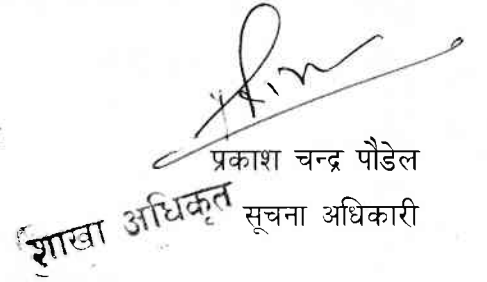 प्रकाश चन्द्र पौडेल
शाखा अधिकृत
सूचना अधिकारी